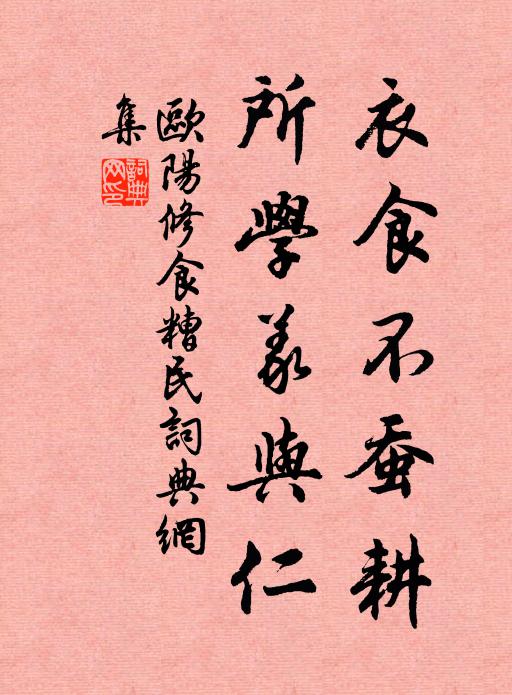 衣食不蚕耕
所學義與仁
歐陽修食糟民詞典網
集
詞典網印